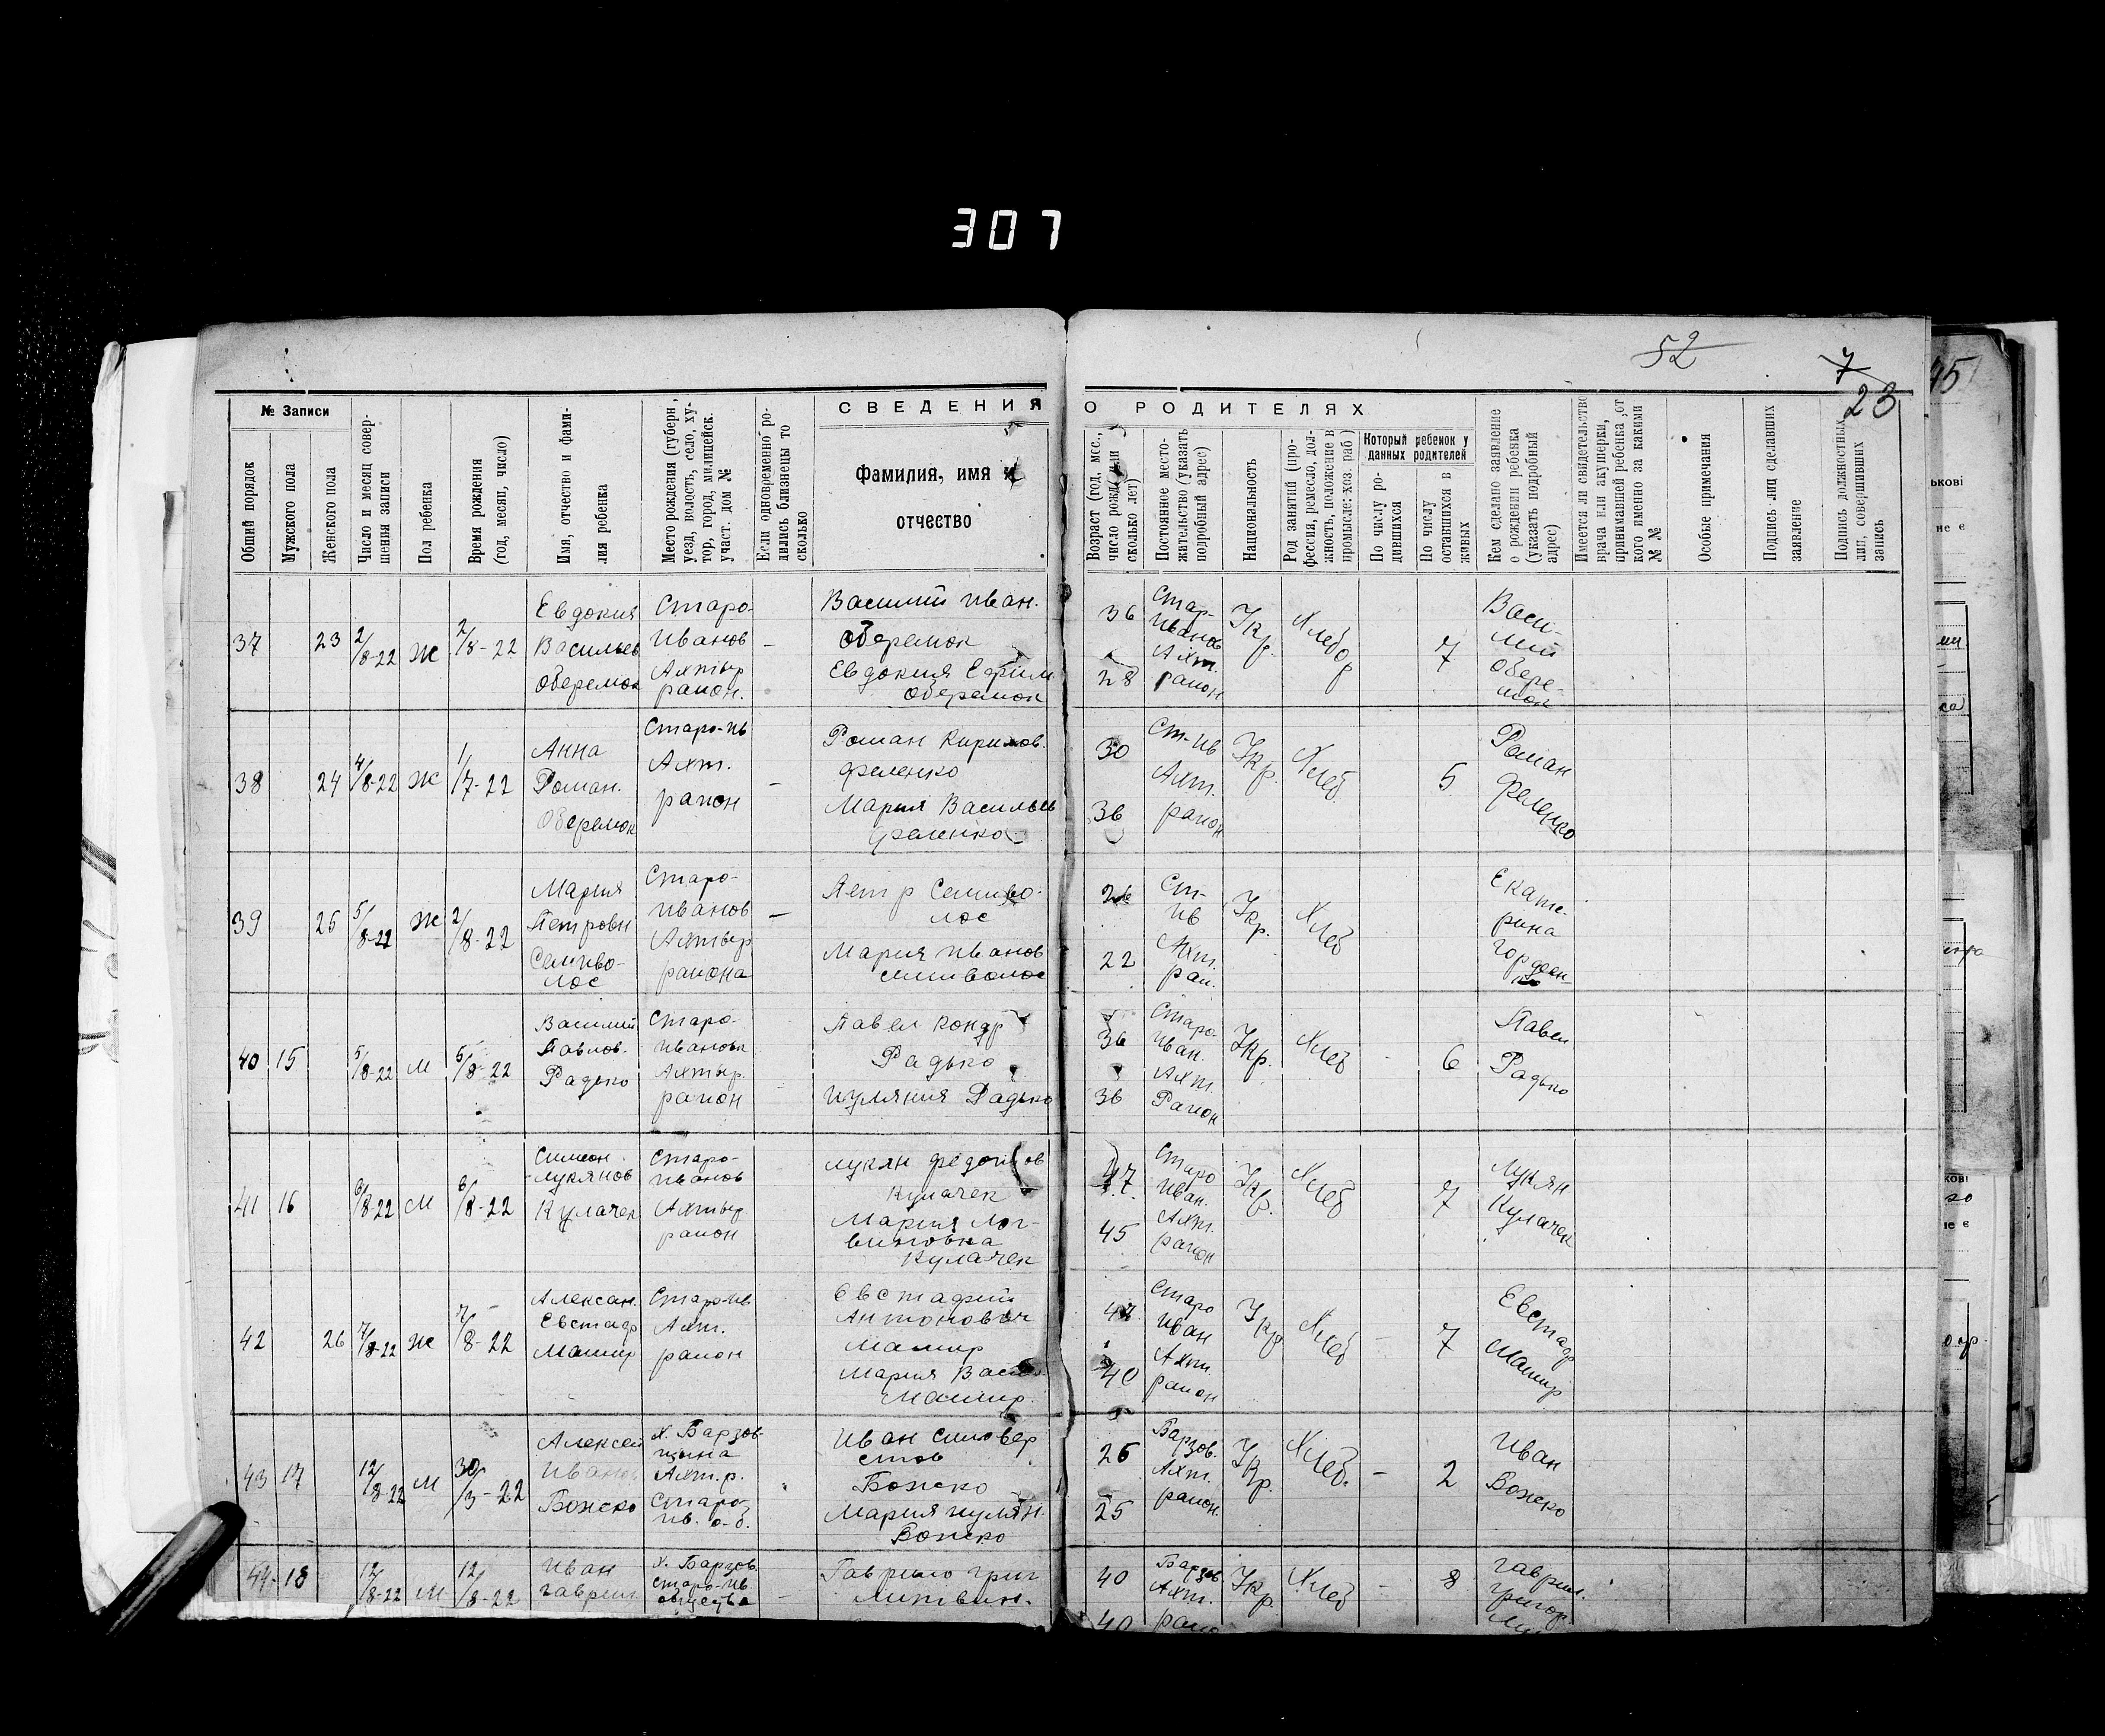 307
52
7
23
45
№ Записи
СВЕДЕНИЯ
О РОДИТЕЛЯХ
Общий порядок
Мужского пола
Женского пола
Число и месяц совер-
шения записи
Пол ребенка
Время рождения
(год, месяц, число)
Имя, отчество и фами-
лия ребенка
Место рождения (губерн.,
уезд, волость, село, ху-
тор, город, милицейск.
участ. дом №
Если одновременно ро-
дились близнецы то
сколько
Фамилия, имя и
отчество
Возраст (год, мес.,
число рожд. или
сколько лет)
Постоянное место-
жительство (указать
подробный адрес)
Национальность
Род занятий (про-
фессия, ремесло, дол-
жность, положение в
промысле: хоз. раб)
Который ребенок у
данных родителей
По числу ро-
дившихся
По числу
оставшихся в
живых
Кем сделано заявление
о рождении ребенка
(указать подробный
адрес)
Имеется ли свидетельство
врача или акушерки,
принимавшей ребенка, от
кого именно за какими
№ №
Особые примечания
Подпись лиц сделавших
заявление
Подпись должностных
лиц, совершивших
запись
37
23
2/8-22
Ж
2/8-22
Евдокия
Васильев
Оберемок
Старо-
Иванов
Ахтыр
район.
-
Василий Иван.
Оберемок
Евдокия Ефим
Оберемок
36
28
Стар-
Иванов
Ахт.
район
Укр.
Хлебор
7
Васи-
лий
Обере-
мок
38
24
4/8-22
Ж
1/7-22
Анна
Роман.
Оберемок
Старо-Ив
Ахт.
район
-
Роман Кирилов.
Феленко
Мария Васильев
Феленко
30
36
Ст-Ив
Ахт.
район
Укр.
Хлеб.
5
Роман
Феленко
39
25
5/8-22
Ж
2/8-22
Мария
Петровн
Семиво-
лос
Старо-
Иванов
Ахтыр
района
-
Петр Семиво-
лос
Мария Иванов
Семиволос
26
22
Ст-
Ив
Ахт.
рай.
Укр.
Хлеб
Екате-
рина
Гордеен-
ко
40
15
5/8-22
М
5/8-22
Василий
Павлов.
Радько
Старо-
Ивановк
Ахтыр.
район
Павел Кондр
Радько
Иулияния Радько
36
36
Старо-
Иван.
Ахт.
Район
Укр.
Хлеб
-
6
Павел
Радько
41
16
6/8-22
М
6/8-22
Симеон
Лукянов
Кулачек
Старо-
Иванов
Ахтыр
район
Лукян Федотов
Кулачек
Мария Лог-
виновна
Кулачек
47
45
Старо
Иван.
Ахт.
район
Укр.
Хлеб
7
Лукян
Кулачек
42
26
7/8-22
Ж
7/8-22
Алексан.
Евстафр
Машир
Старо-Ив
Ахт.
район
Евстафий
Антонович
Машир
Мария Васил
Машир.
40
Старо
Иван
Ахт.
район
Укр
Хлеб
-
7
Евстаф
Машир
43
17
12/8-22
М
30/3-22
Алексей
Иванов
Божко
Х. Барзов-
щина
Ахт. р.
Старо
Ив. о-б.
Иван
Божко
Мария
Божко
26
25
Барзов.
Ахт.
район.
Укр.
Хлеб.
-
2
Иван
Божко
44
18
12/8-22
М
12/8-22
Иван
Гаврил.
Х. Барзов.
Старо-Ив
общества
-
Гаврило Григ
Литвин.
40
40
Барзов.
Ахт.
Укр.
Хлеб
-
8
Гаврил.
Григор.